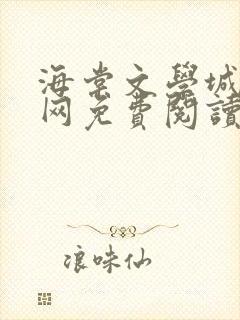 海棠文學城
网免費閱讀
浪味仙